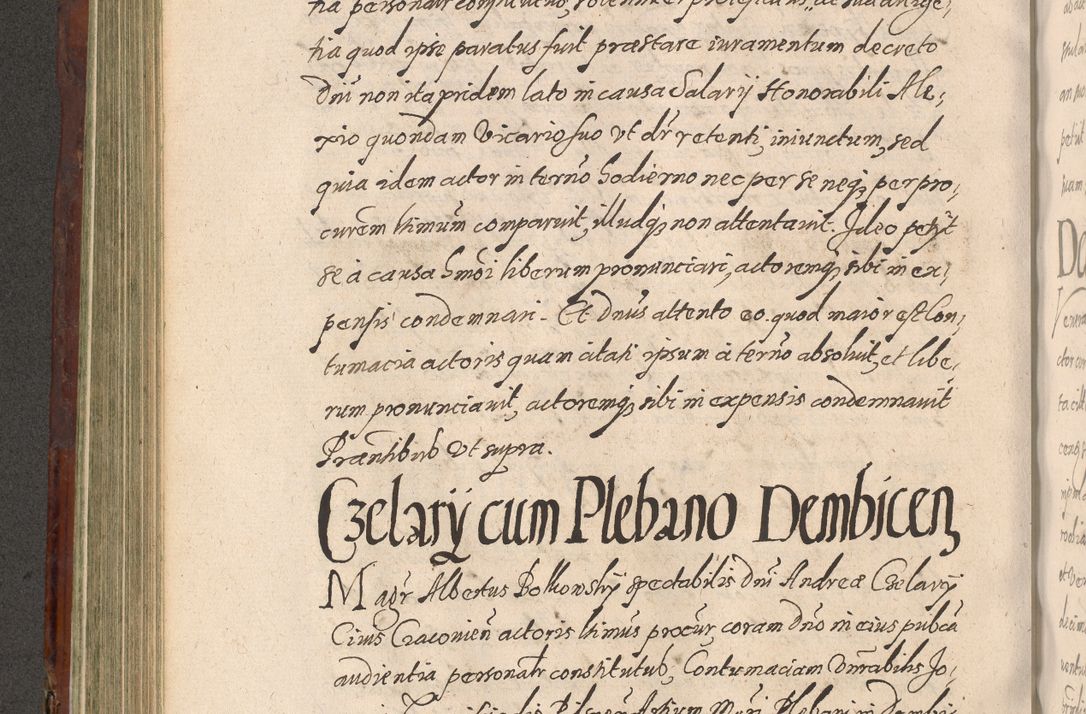 tia quod ipse paratus fuit præstare iuramentum decreto
Dni non ita pridem lato in causa Salarij Honorabili Ale,
xio quondam Vicario suo vt dr retenti, iniunctum, sed
quia idem actor in terno hodierno nec per se neq3 per pro,
curem ltimum comparuit, illudq3 non attentauit. Ideo petijt
se à causa hmoi liberum pronunciari, actoremq3 sibi in ex,
pensis condemnari. Et Dnus attento eo quod maior est Con,
tumacia actoris quam citati ipsum à terno absoluit, et libe,
rum pronunciauit, actoremq3 sibi in expensis condemnauit
Præntibus vt supra.
Czelarij cum Plebano Dembicen
Magr Albertus Bolkowskij spectabilis Dni Andreæ Czelarij
Ciuis Cracouien actoris ltimus procur, coram Dno in eius pubca
audientia personalr constitutus, Contumaciam Vnrabilis Jo,